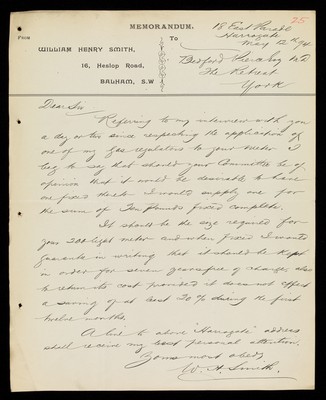 25
MEMORANDUM.
From
To
WILLIAM HENRY SMITH,
16, Heslop Road,
BALHAM, S.W
18 East Parade
Harrogate
May 12th /94
Bedford Pierce Esq M.D
The Retreat
York
Dear Sir
Referring to my interview with you
a day or two since respecting the application of
one of my Gas regulators to your Meter I
beg to say that should your Committee be of
opinion that it would be desirable to have
one fixed there I would supply one for
the sum of Ten Pounds fixed complete.
It should be the size required for
your 200 light meter and when fixed I would
guarantee in writing that it should be kept
in order for seven years free of charge, also
to return its cost provided it does not effect
a saving of at least 20 % during the first
twelve months.
A line to above "Harrogate" address
shall receive my best personal attention.
Yours most obedt,
W. H. Smith.